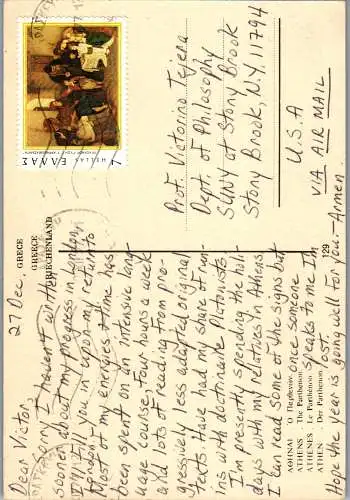 27 Dec.
Dear Victor
Sorry I haven't written
sooner about my progress in London,
I'll fill you in upon my return to
London.
Most of my energies & time has
been spent on an intensive lang-
uage course. Four hours a week
and lots of reading from pro-
gressively less adapted original
texts. Have had my share of run-
ins with doctrinaire Platonists
I'm presently spending the holi-
days with my relatives in Athens.
I can read some of the signs but
once someone
speaks to me I'm
lost.
Hope the year is going well for you. — Armen
GRECE
GREECE
GRIECHENLAND
129
ΑΘΗΝΑΙ Ὁ Παρθενών
ATHENS . The Parthenon
ATHENES . Le Parthenon
ATHEN . Der Parthenon
HELLAS ΕΛΛΑΣ
7
Prof. Victorino Tejera
Dept. of Philosophy
SUNY at Stony Brook
Stony Brook, N.Y. 11794
U.S.A
VIA AIR MAIL